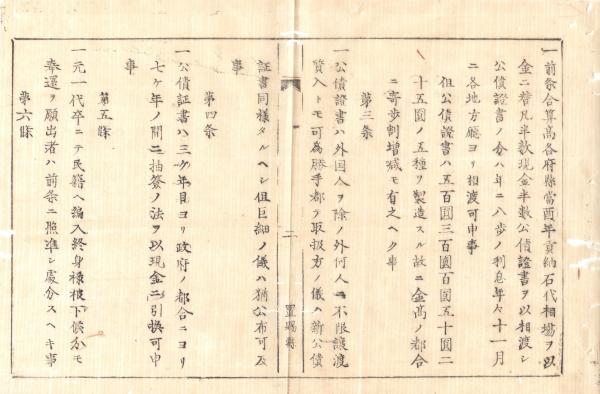 一前条合算高各府縣當酉年貢納石代相場ヲ以
金ニ替凡半数現金半数公債證書ヲ以相渡シ
公債證書ノ分ハ年ニ八歩ノ利息年々十一月
ニ各地方廳ヨリ相渡可申事
但公債證書ハ五百圓三百圓百圓五十圓二
十五圓ノ五種ヲ製造スル故ニ金高ノ都合
ニ寄歩割増減モ有之ヘク事
第三条
一公債證書ハ外国人ヲ除ノ外何人ニモ不限讓渡
質入トモ可為勝手都テ取扱方ノ儀ハ新公債
二
置賜縣
証書同様タルヘシ但巨細ノ儀ハ猶公布可及
事
第四条
一公債証書ハ三ケ年目ヨリ政府ノ都合ニヨリ
七ケ年ノ間ニ抽簽ノ法ヲ以現金ニ引換可申
事
第五條
一元一代卒ニテ民籍ヘ編入終身禄被下候分モ
奉還ヲ願出者ハ前条ニ照準シ處分スヘキ事
第六條